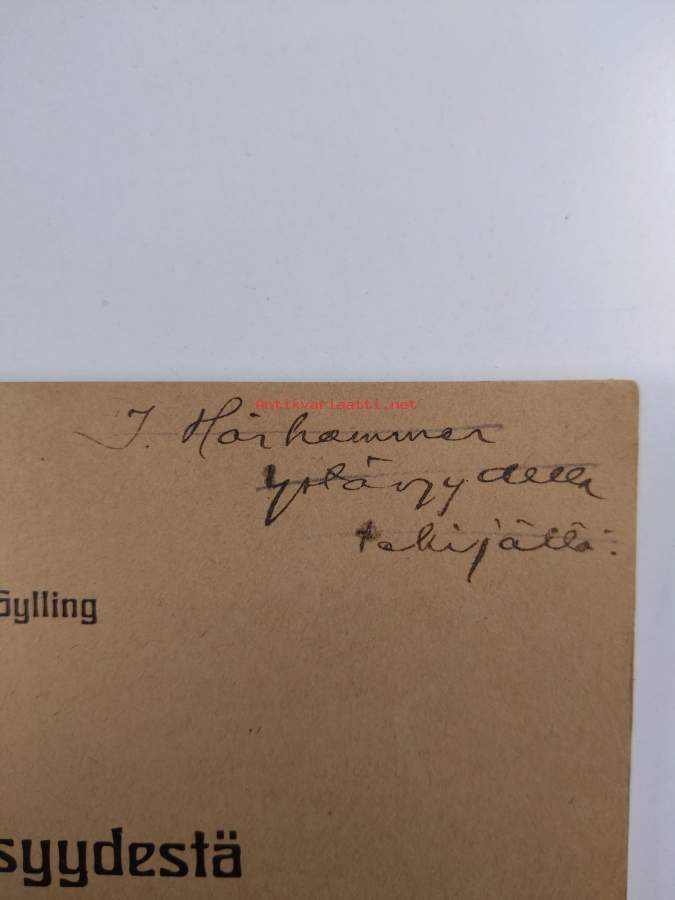 Antikvariaatti.net
J. Härhammer
ystävyydellä
tekijältä:
Gylling
syydestä